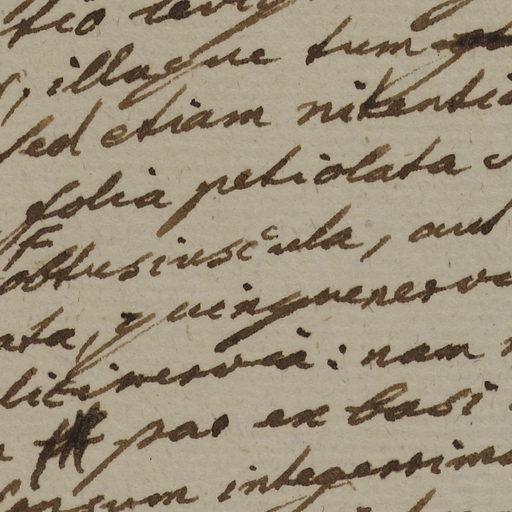 illaque tum
sed etiam nitentia
folia petiolata
obtusiuscula, aut
ata, quinquenervi
litinervia: nam
par ex basi
integerrima